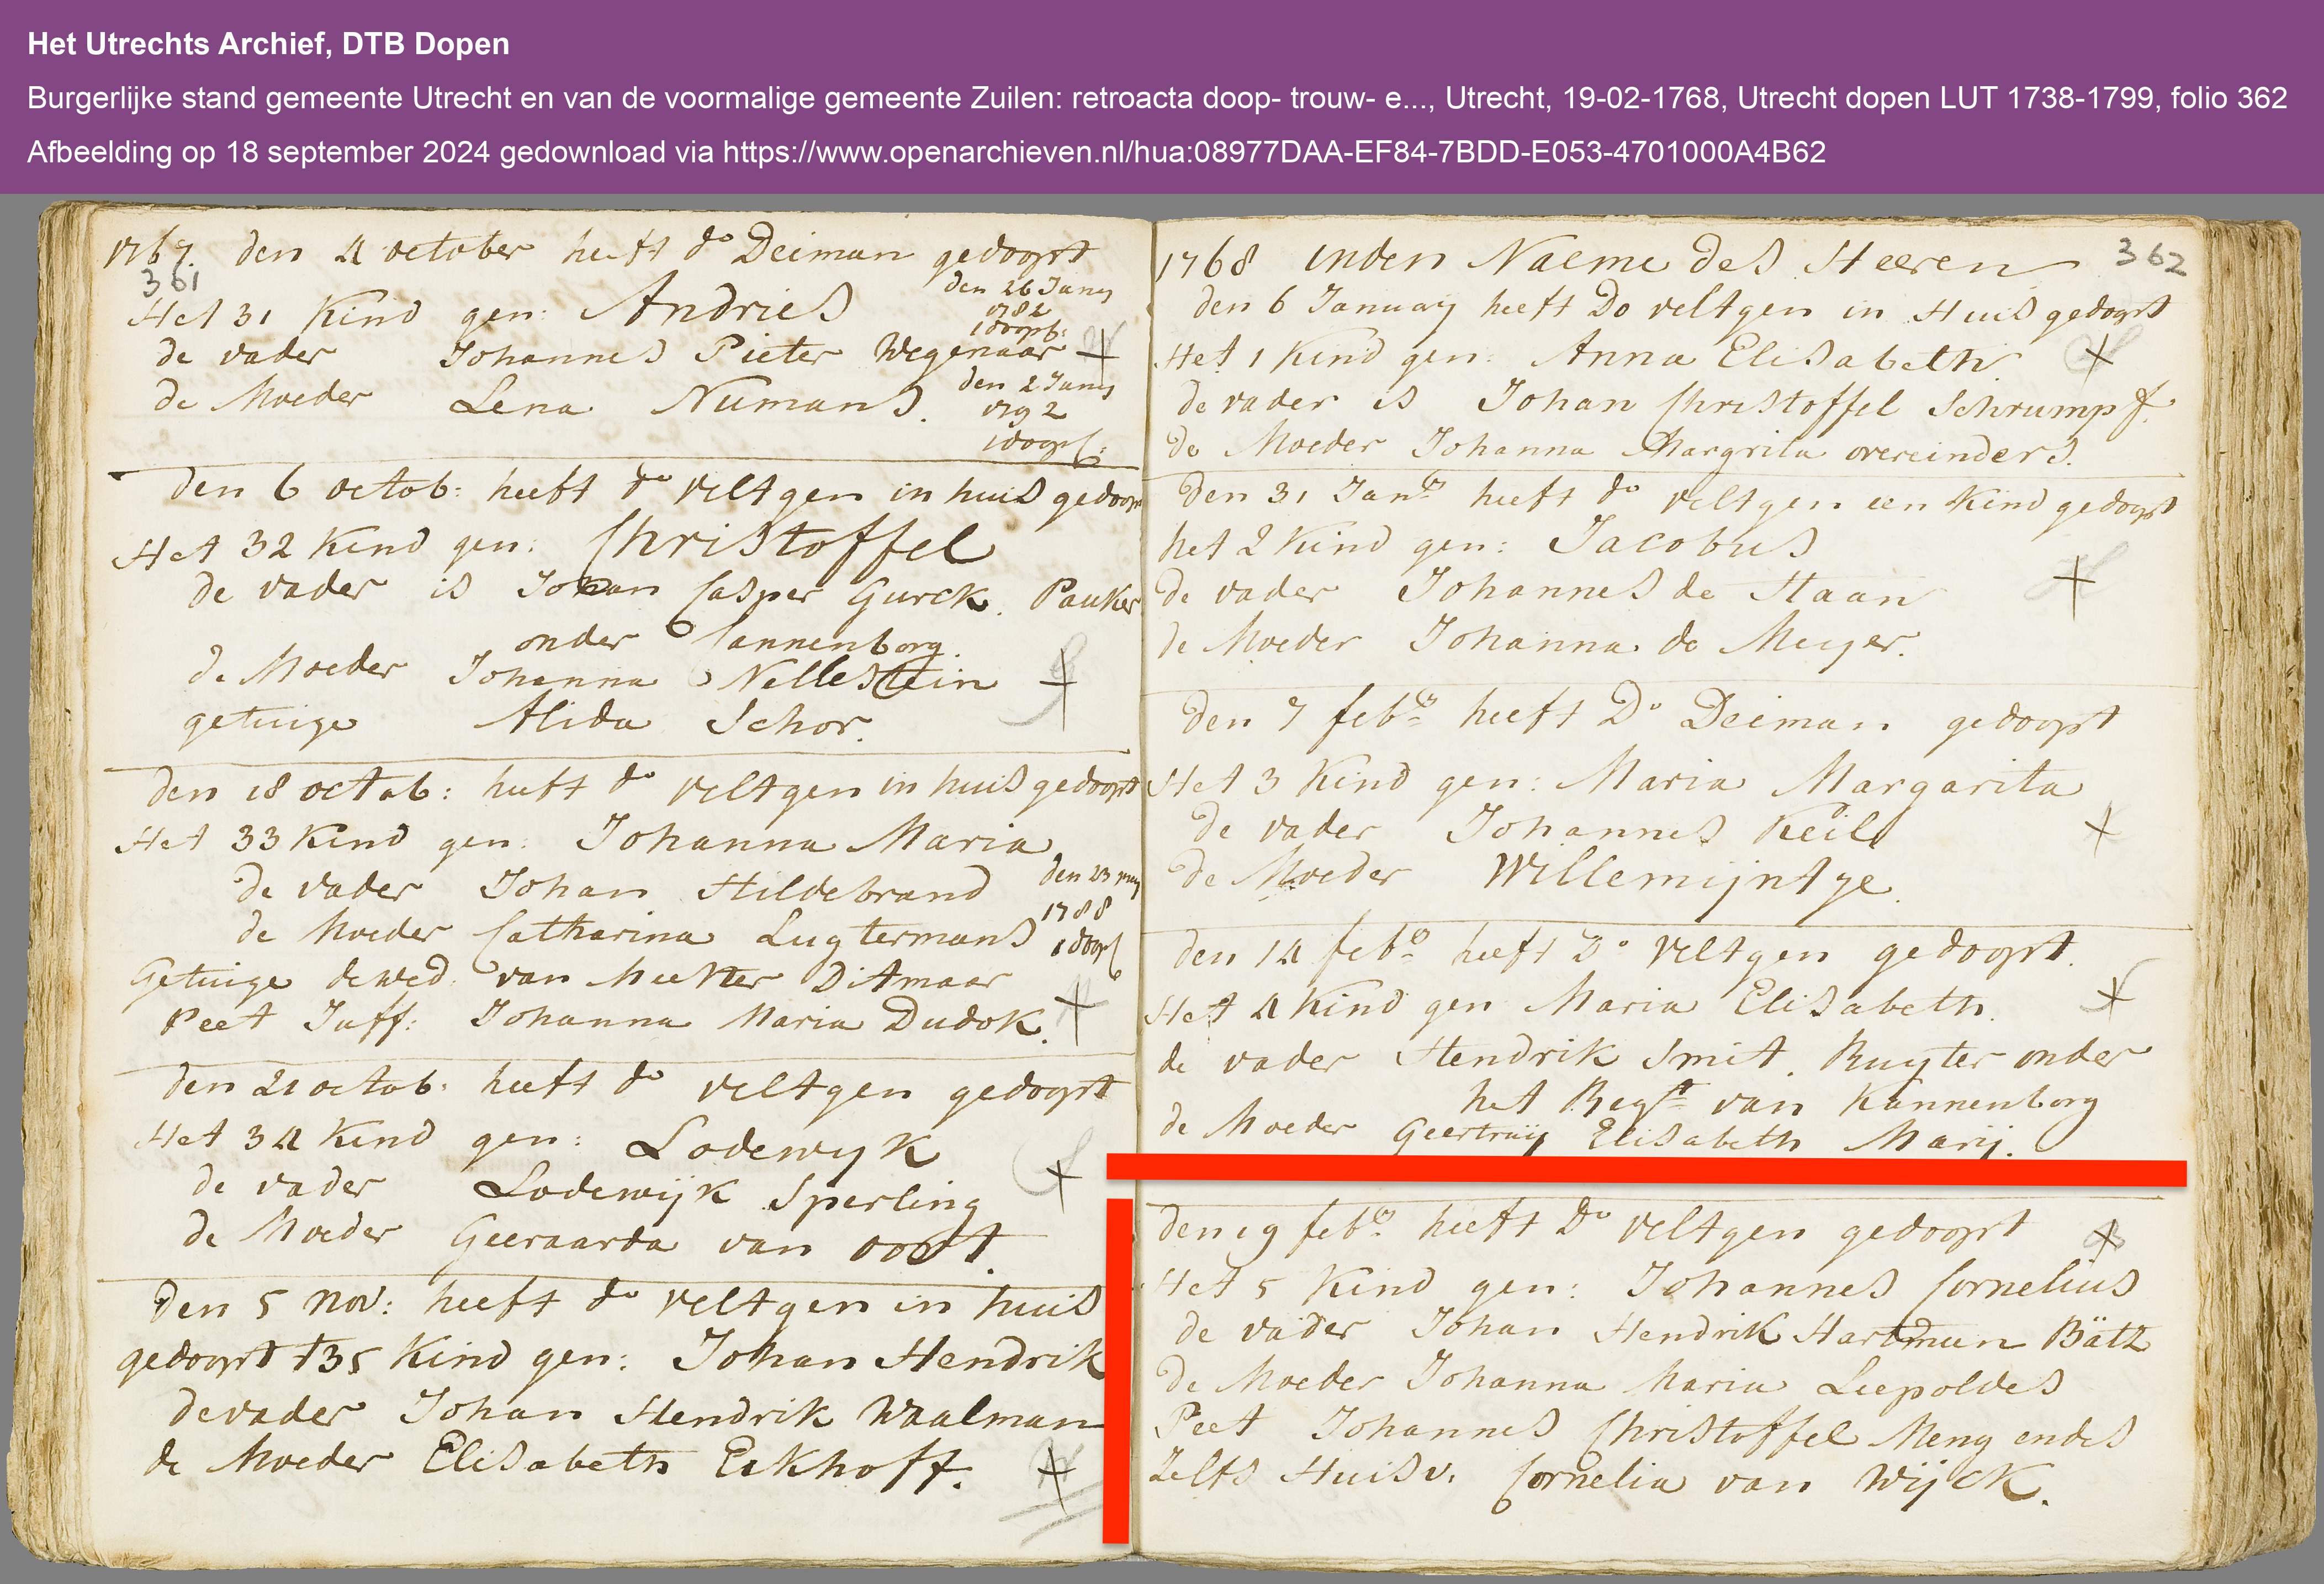 Het Utrechts Archief, DTB Dopen
Burgerlijke stand gemeente Utrecht en van de voormalige gemeente Zuilen: retroacta doop- trouw- e..., Utrecht, 19-02-1768, Utrecht dopen LUT 1738-1799, folio 362
Afbeelding op 18 september 2024 gedownload via https://www.openarchieven.nl/hua:08977DAA-EF84-7BDD-E053-4701000A4B62
1767. den 4 october heeft do Deiman gedoopt
361
den 26 Juny
1782
1 doopb:
Het 31 Kind gen: Andries
de vader Johannes Pieter Wegenaar
den 2 Juny
1792
1 doops:
de Moeder Lena Numans.
den 6 octob: heeft do Veltgen in huis gedoopt
Het 32 Kind gen: Christoffel
de vader is Johan Casper Gurck. Pauker
onder Cannenborg.
de Moeder Johanna Nellestein
getuige Alida Schor.
den 18 octob: heeft do Veltgen in huis gedoopt
Het 33 Kind gen: Johanna Maria
de vader Johan Hildebrand
den 23 may
1788
1 doops
de Moeder Catharina Lugtermans
Getuige de wed. van Meester Ditmaar
Peet Juff: Johanna Maria Dudok.
den 21 octob: heeft do Veltgen gedoopt
Het 34 Kind gen: Lodewyk
de vader Lodewijk Sperling
de Moeder Geeraarda van oort.
Den 5 Nov: heeft do Veltgen in huis
gedoopt t 35 Kind gen: Johan Hendrik
de vader Johan Hendrik Waalman
de Moeder Elisabeth Eckhoff.
1768 inden Naeme des Heeren
362
den 6 January heeft Do Veltgen in Huis gedoopt
Het 1 Kind gen: Anna Elisabeth
de vader is Johan Christoffel Schrumpf.
de Moeder Johanna Margrita overeinders.
Den 31 Jany heeft do Veltgen een Kind gedoopt
het 2 Kind gen: Jacobus
de vader Johannes de Haan
de Moeder Johanna de Meyer.
Den 7 feby heeft Do Deiman gedoopt
Het 3 Kind gen: Maria Margarita
de vader Johannes Keil
de Moeder Willemijntye.
den 14 feby heeft Do Veltgen gedoopt.
Het 4 Kind gen Maria Elisabeth.
de vader Hendrik Smit. Ruyter onder
het Regt van Kannenborg
de Moeder Geertruy Elisabeth Marij.
den 19 feby heeft Do Veltgen gedoopt
Het 5 Kind gen: Johannes Cornelius
de vader Johan Hendrik Hartman Bätz
de Moeder Johanna Maria Leepoldes
Peet Johannes Christoffel Meng en des
Zelfs Huisv. Cornelia van Wijck.